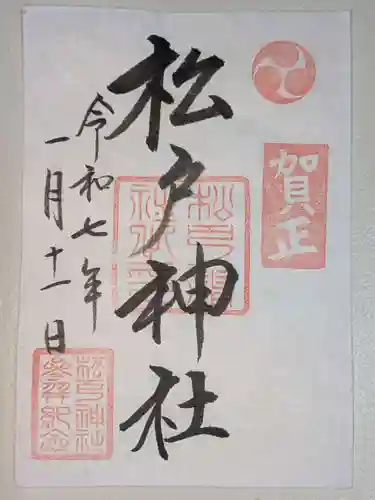 賀正
松戸神社
令和七年
一月十一日
松戸神社
参拝記念